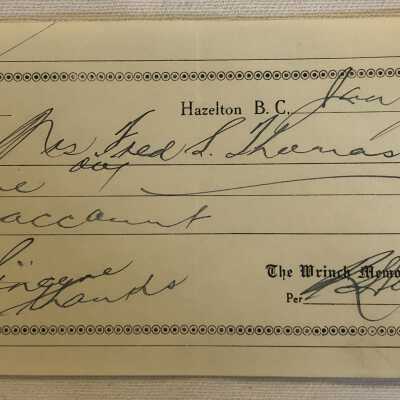 Hazelton B. C. Jan
Mrs Fred S. Thomas
account
thanks
The Wrinch Memo
Per